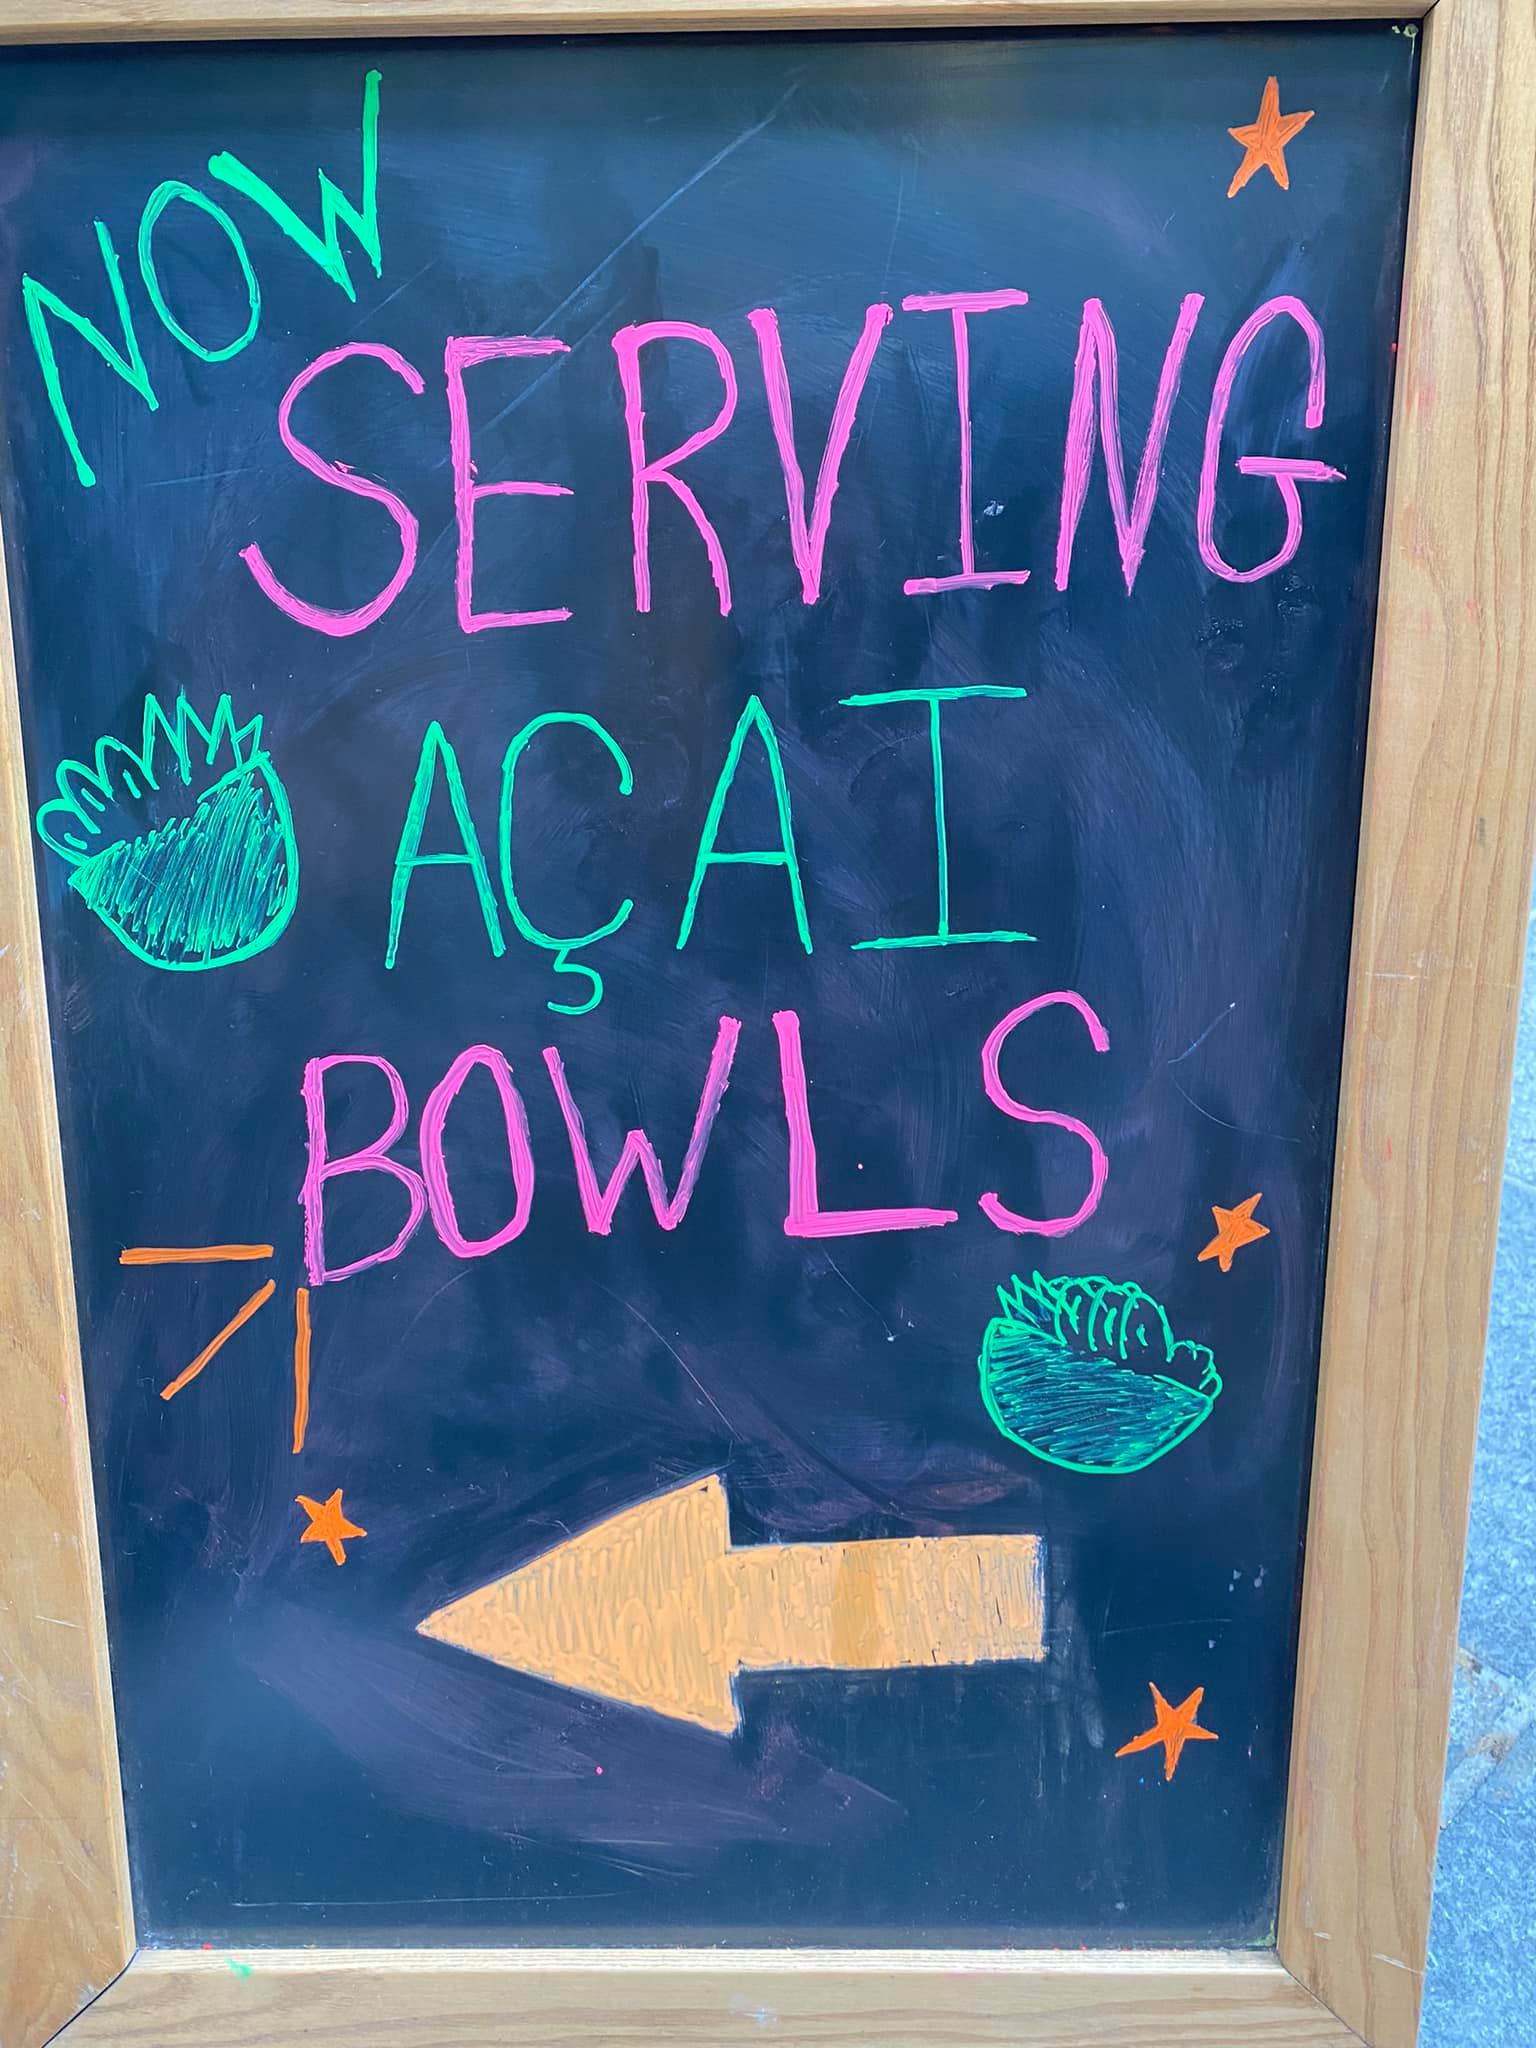 NOW
SERVING
AÇAI
BOWLS